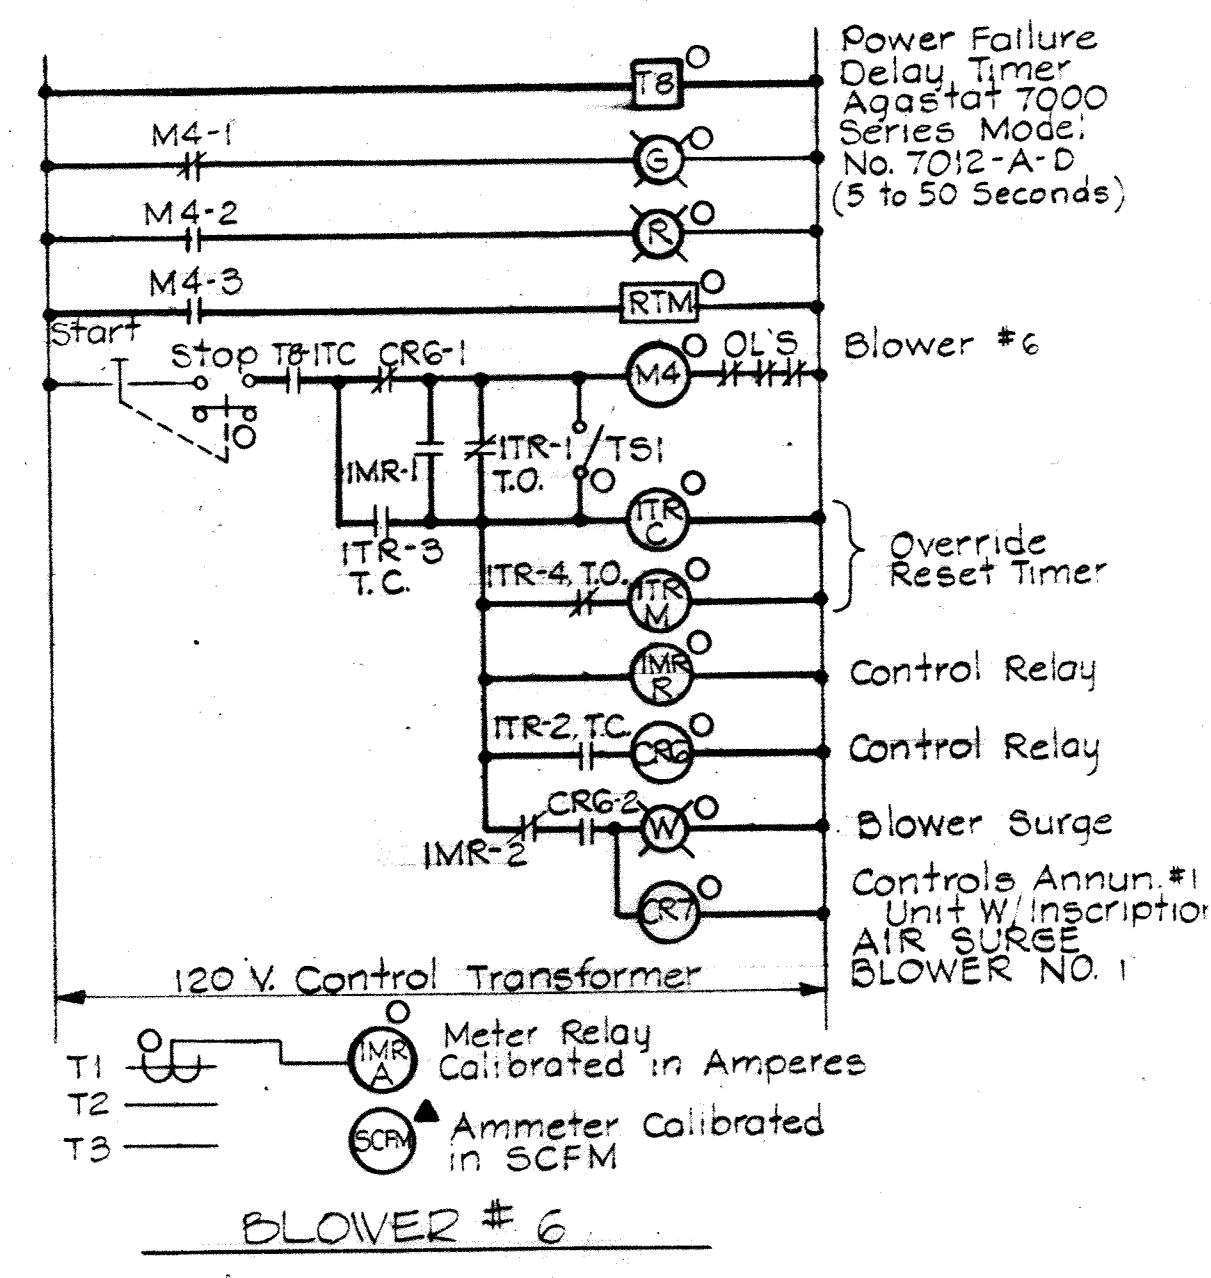 Power Failure
Delay Timer
Agastat 7000
Series Model
No. 7012-A-D
(5 to 50 Seconds)
T8
M4-1
G
M4-2
R
M4-3
RTM
Start
Stop
T8-1TC
CR6-1
M4
OL'S
Blower #6
1MR-1
1TR-1
T.O.
TS1
1TR-3
T.C.
1TR
C
1TR-4, T.O.
1TR
M
Override
Reset Timer
1MR
R
Control Relay
1TR-2, T.C.
CR6
Control Relay
1MR-2
CR6-2
W
Blower Surge
CR7
Controls Annun. #1
Unit W/Inscription
AIR SURGE
BLOWER NO. 1
120 V. Control Transformer
T1
T2
T3
1MR
A
Meter Relay
Calibrated in Amperes
SCFM
Ammeter Calibrated
in SCFM
BLOWER # 6